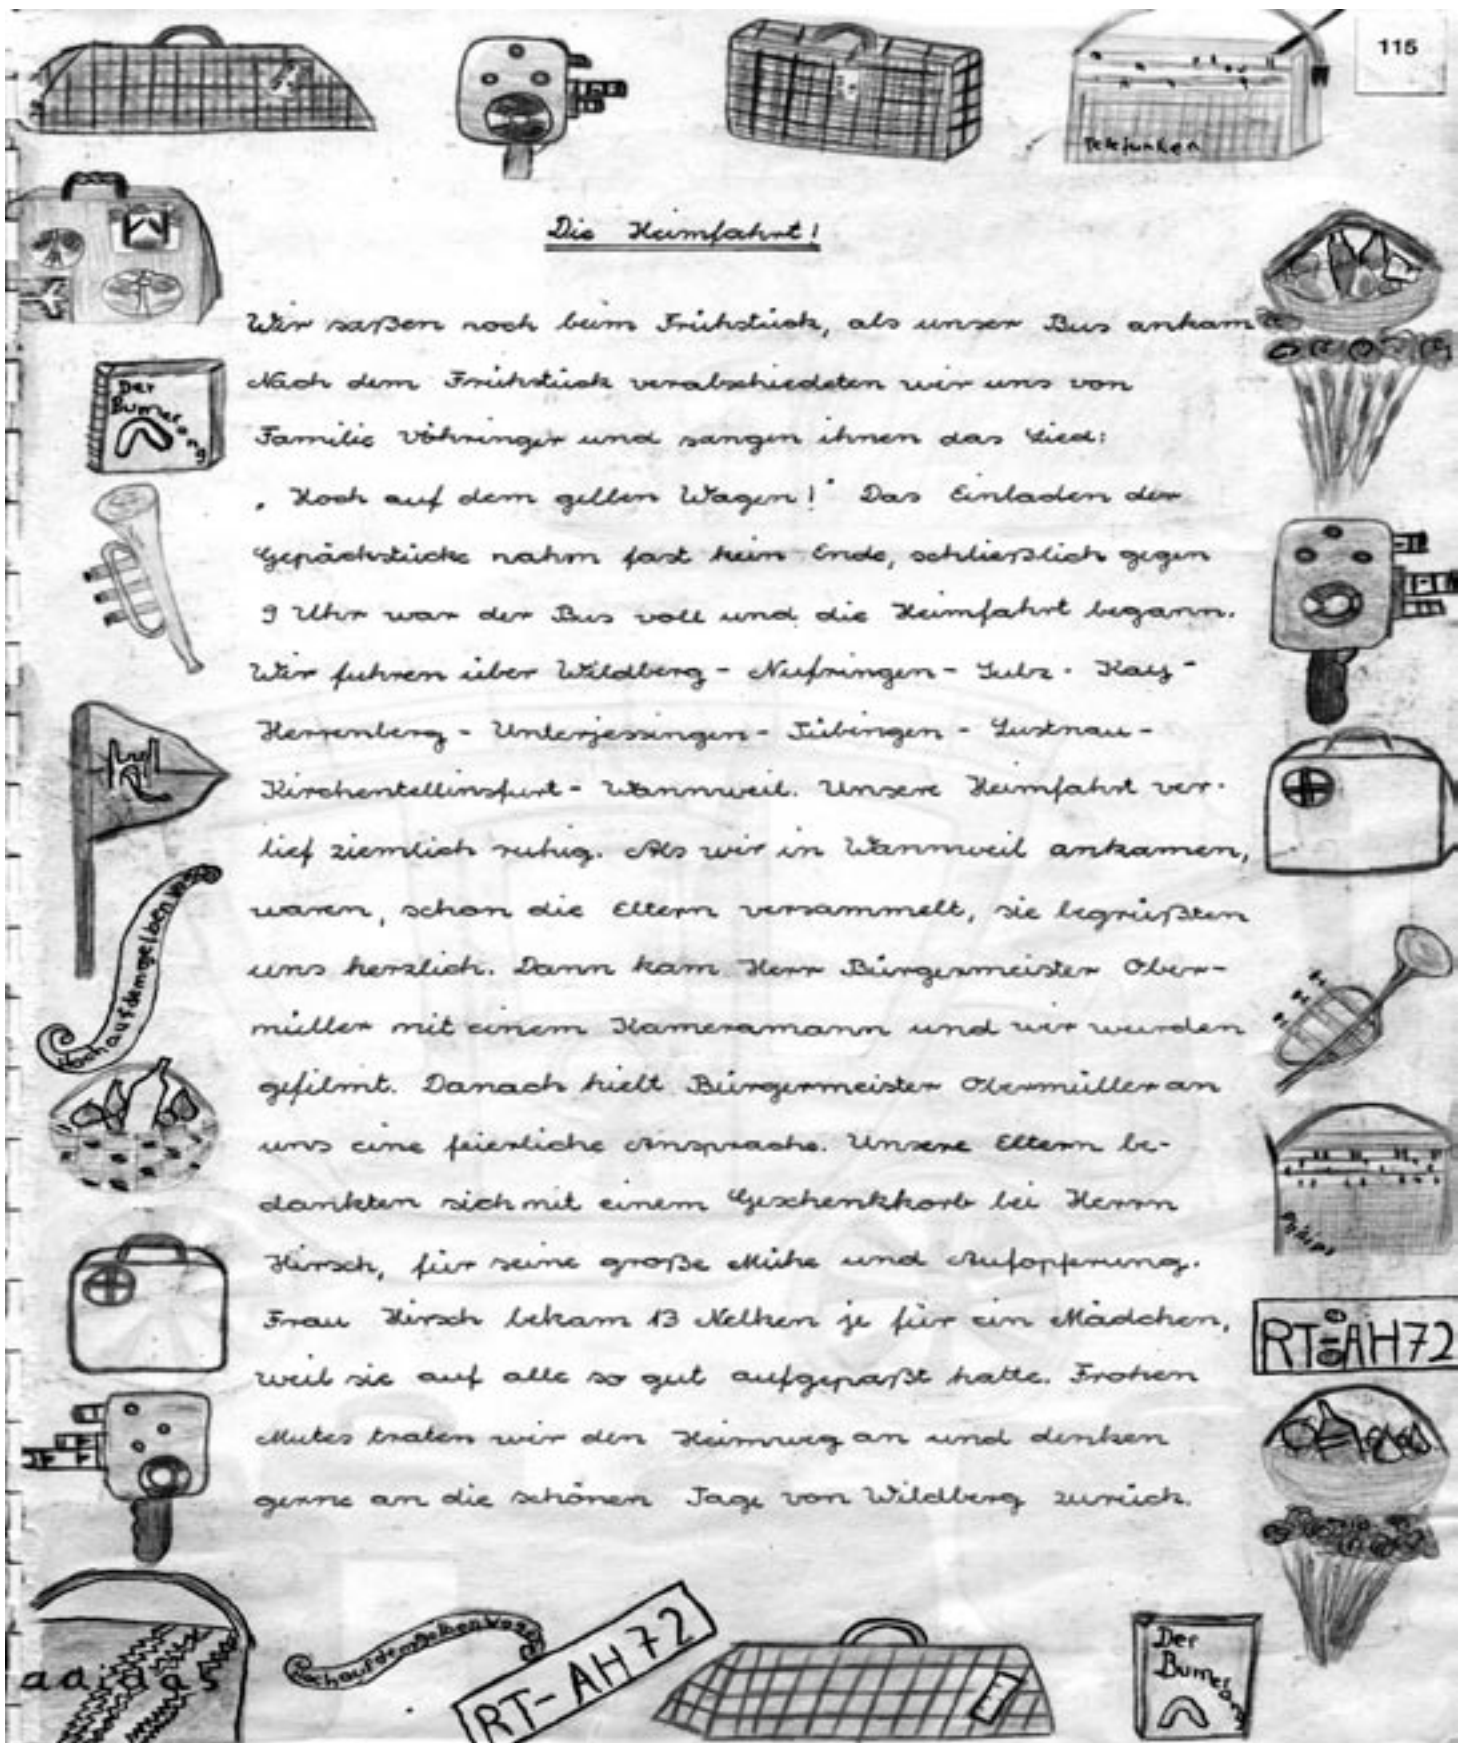 115
Telefunken
Die Heimfahrt!
Wir saßen noch beim Frühstück, als unser Bus ankam
Nach dem Frühstück verabschiedeten wir uns von
Der
Bumerang
Familie Vöhringer und sangen ihnen das Lied:
„Hoch auf dem gelben Wagen!" Das Einladen der
Gepäckstücke nahm fast kein Ende, schließlich gegen
9 Uhr war der Bus voll und die Heimfahrt begann.
Wir fuhren über Wildberg - Nufringen - Sulz - Kay -
Herrenberg - Unterjessingen - Tübingen - Lustnau -
Kirchentellinsfurt - Wannweil. Unsere Heimfahrt ver-
lief ziemlich ruhig. Als wir in Wannweil ankamen,
waren, schon die Eltern versammelt, sie begrüßten
uns herzlich. Dann kam Herr Bürgermeister Ober-
Hoch auf dem gelben
müller mit einem Kameramann und wir wurden
gefilmt. Danach hielt Bürgermeister Obermüller an
uns eine feierliche Ansprache. Unsere Eltern be-
dankten sich mit einem Geschenkkorb bei Herrn
Philips
Hirsch, für seine große Mühe und Aufopferung.
Frau Hirsch bekam 13 Nelken je für ein Mädchen,
RT-AH72
weil sie auf alle so gut aufgepaßt hatte. Frohen
Mutes traten wir den Heimweg an und denken
gerne an die schönen Tage von Wildberg zurück.
adidas
Hoch auf dem gelben
RT-AH72
Der
Bumerang